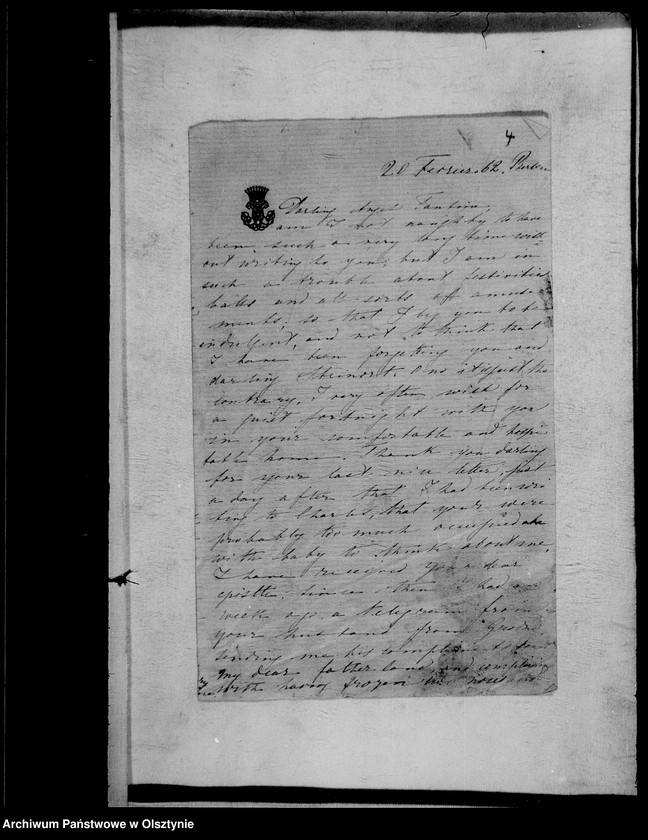 4
20 Februar 62. Berlin
Darling Angel
am I not naughty to have
been such a very long time with
out writing to you; but I am in
such a trouble about festivities
balls and all sorts off amuse
ments, so that I beg you to be
indulgent, and not to think that
I have been forgetting you and
darling Steinort O no it is just the
contrary, I very often wish for
a quiet fortnight with you
in your comfortable and hospi
table home. Thank you darling
for your last nice letter, just
a day after that I had been wri
ting to Charles, that you were
probably too much occupied
with baby to think about me,
I have received your dear
epistle. since then I had a
week ago a telegram from
your husband from
sending me his compliment to
my dear fatherland, and complaining
with having frozen his nose
Archiwum Państwowe w Olsztynie